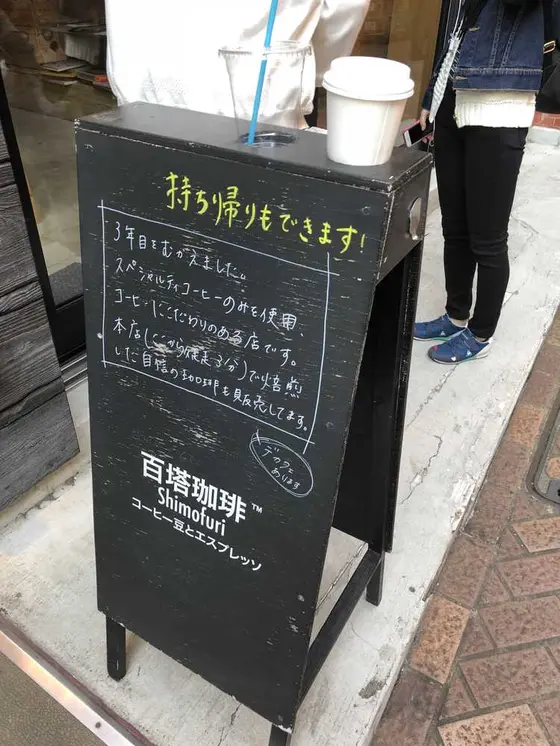 持ち帰りもできます!
3年目をむかえました。
スペシャルティコーヒーのみを使用、
コーヒーにこだわりのある店です。
本店(ここから徒歩3分)で焙煎
した自信の珈琲も販売してます。
デカフェ
あります
百塔珈琲™
Shimofuri
コーヒー豆とエスプレッソ